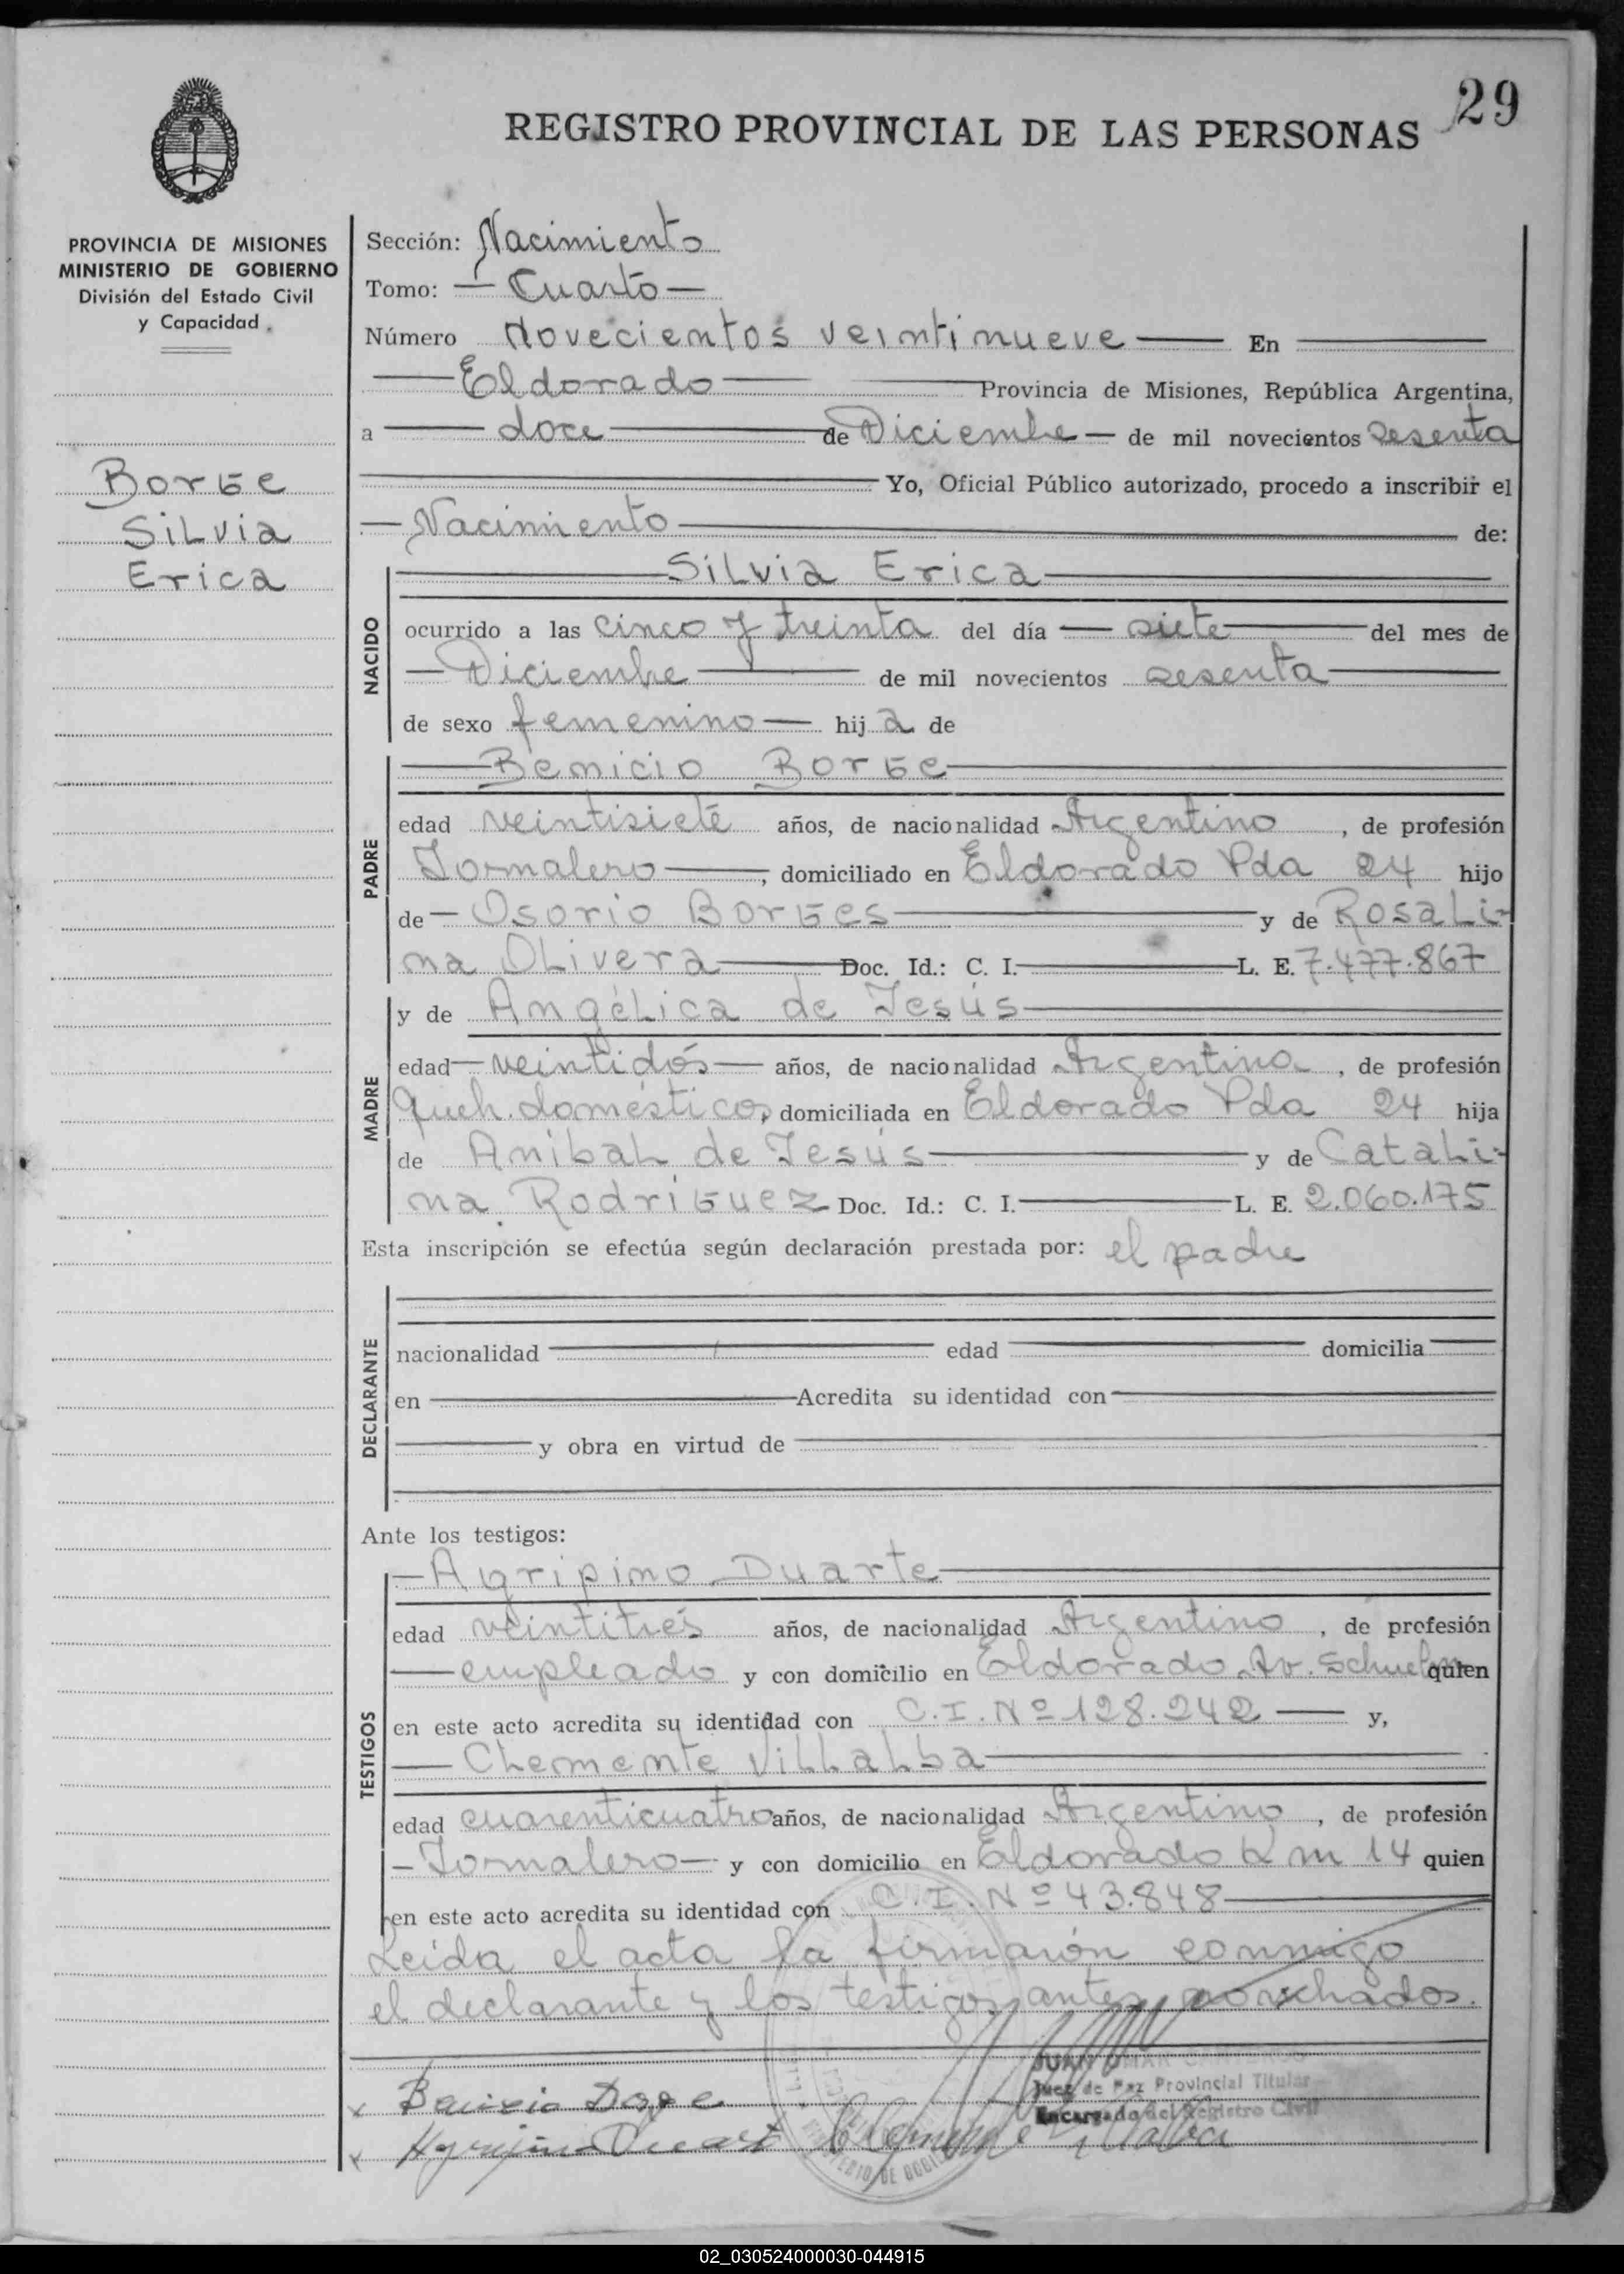 29
REGISTRO PROVINCIAL DE LAS PERSONAS
PROVINCIA DE MISIONES
MINISTERIO DE GOBIERNO
División del Estado Civil
y Capacidad.
Borge
Silvia
Erica
Sección: Nacimiento
Tomo: Cuarto
Número Novecientos veintinueve En
Eldorado Provincia de Misiones, República Argentina,
a doce de Diciembre de mil novecientos sesenta
Yo, Oficial Público autorizado, procedo a inscribir el
Nacimiento de:
NACIDO
Silvia Erica
ocurrido a las cinco y treinta del día siete del mes de
Diciembre de mil novecientos sesenta
de sexo femenino hija de
PADRE
Benicio Borge
edad veintisiete años, de nacionalidad Argentino, de profesión
Jornalero, domiciliado en Eldorado Pda 24 hijo
de Osorio Borges y de Rosali-
na Olivera Doc. Id.: C. I. L. E. 7.477.867
MADRE
y de Angélica de Jesús
edad veintidós años, de nacionalidad Argentina, de profesión
Queh. domésticos, domiciliada en Eldorado Pda 24 hija
de Anibal de Jesús y de Catali-
na Rodriguez Doc. Id.: C. I. L. E. 2.060.175
Esta inscripción se efectúa según declaración prestada por: el padre
DECLARANTE
nacionalidad edad domicilia
en Acredita su identidad con
y obra en virtud de
Ante los testigos:
TESTIGOS
Agripino Duarte
edad veintitrés años, de nacionalidad Argentino, de profesión
empleado y con domicilio en Eldorado Av. quien
en este acto acredita su identidad con C.I. Nº 128.242 y,
Clemente Villalba
edad cuarenticuatro años, de nacionalidad Argentino, de profesión
Jornalero y con domicilio en Eldorado Km 14 quien
en este acto acredita su identidad con C.I. Nº 43.848
Leída el acta la firmarón conmigo
el declarante y los testigos antes
JUAN OMAR
Juez de Paz Provincial Titular
Encargado del Registro Civil
Benicio Borge
Agripino Duart Clemente Villalba
02_030524000030-044915